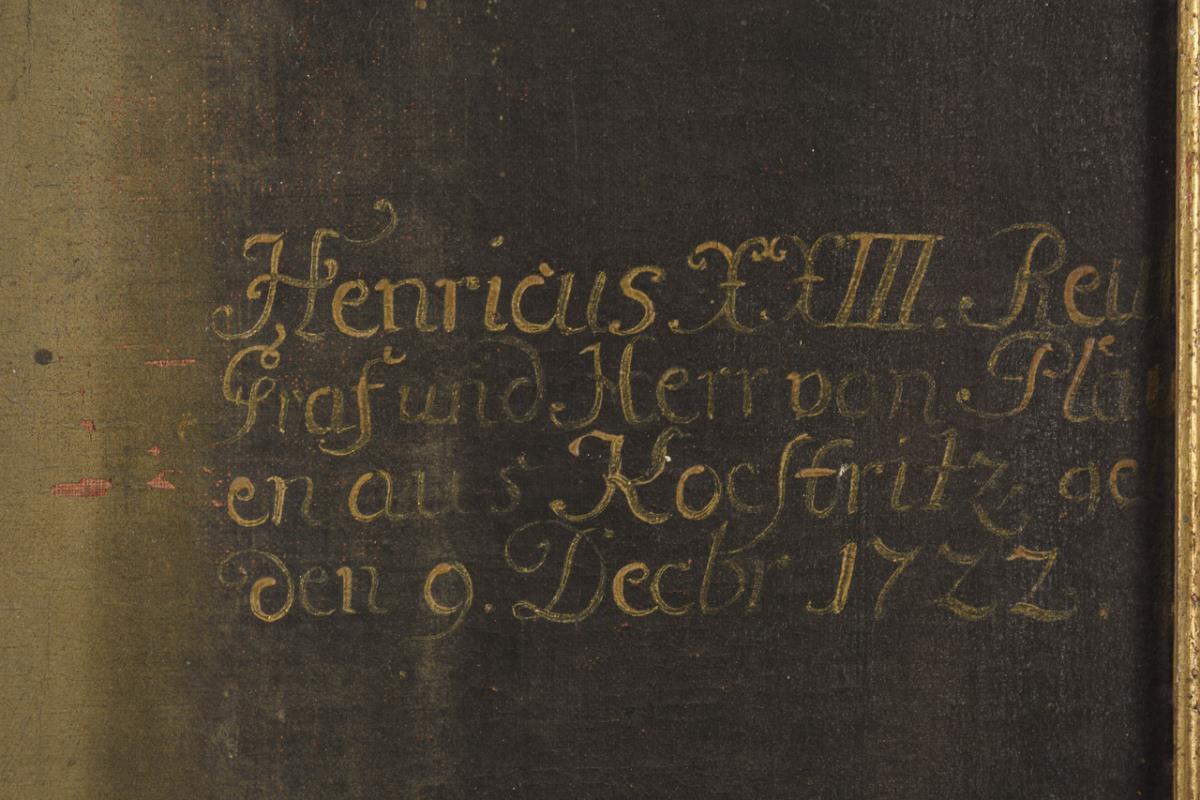 Henricus XXIII. Reu
Graf und Herr von Pla
en aus Kocstritz ge
den 9. Decbr 1722.